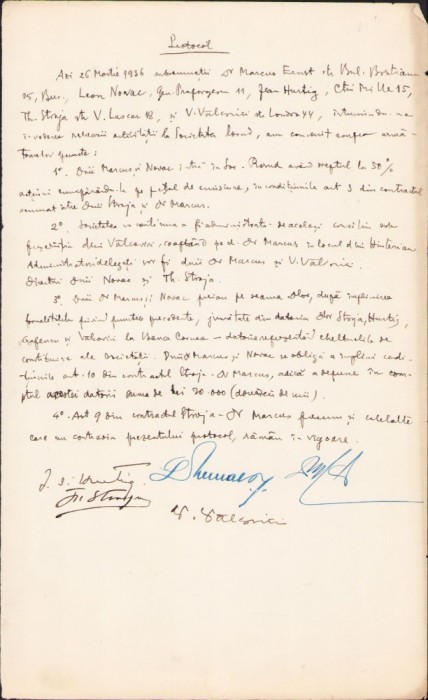 Protocol
Azi 26 Martie 1936 subsemnații Dr Marcus Ernst str. Bul.
25, Buc., Leon Novac, 11, Jean Hurtig, Ctin Mille 15,
Th. Stroja str V. Lascar 18, și V. Valcovici str Londra 44, întrunindu-ne
în vederea activității la Societatea, am convenit asupra urmă-
toarelor puncte:
1º. Dnii Marcus și Novac intră în Soc. având dreptul la 50%
acțiuni cumpărându-le pe prețul de emisiune, în condițiunile art 3 din contractul
semnat între Dnii Stroja și Dr Marcus.
2º. Societatea va continua a fi administrată de același consiliu sub
președinția dlui Valcovici, cooptând pe d. Dr Marcus în locul dlui
Administratori delegați vor fi dnii Dr Marcus și V. Valcovici.
Directori Dnii Novac și Th. Stroja.
3º. Dnii Dr Marcus și Novac preiau pe seama Dlor, după împlinirea
formalităților punctelor precedente, jumătate din datoria Dlor Stroja, Hurtig,
și Valcovici la Banca datorie reprezentând cheltuelile de
ale Societății. Dnii Marcus și Novac se obligă a împlini condi-
țiunile art. 10 din contractul Stroja-Dr Marcus, adică a depune în con-
tul acestei datorii suma de lei 20.000 (douăzeci de mii).
4º. Art 9 din contractul Stroja-Dr Marcus precum și celelalte
care nu contrazic prezentului protocol, rămân în vigoare.
J. Hurtig
Th. Stroja
V. Valcovici